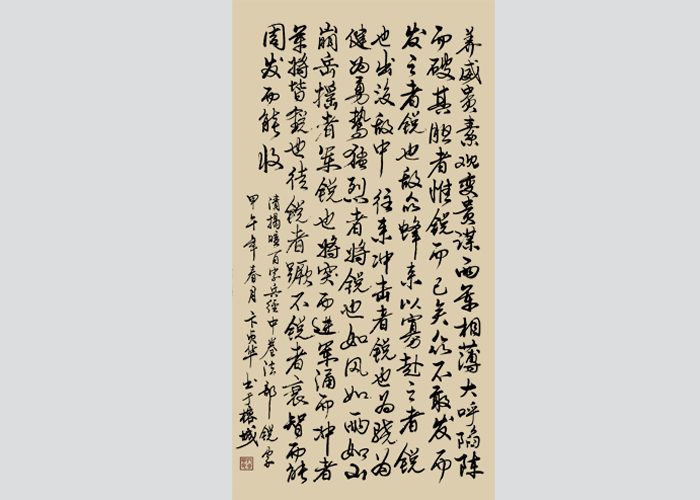 养威贵素观变贵谋两军相薄大呼陷陈
而破其胆者惟锐而已矣众不敢发而
发之者锐也敌众蜂来以寡赴之者锐
也出没敌中往来冲击者锐也为骁为
健为勇鸷猛烈者将锐也如风如雨如山
崩岳摇者军锐也将突而进军涌而冲者
军将皆锐也徒锐者蹶不锐者衰智而能
周发而能收
清揭暄百字兵经中卷法部锐字
甲午年春月卞华书于榕城